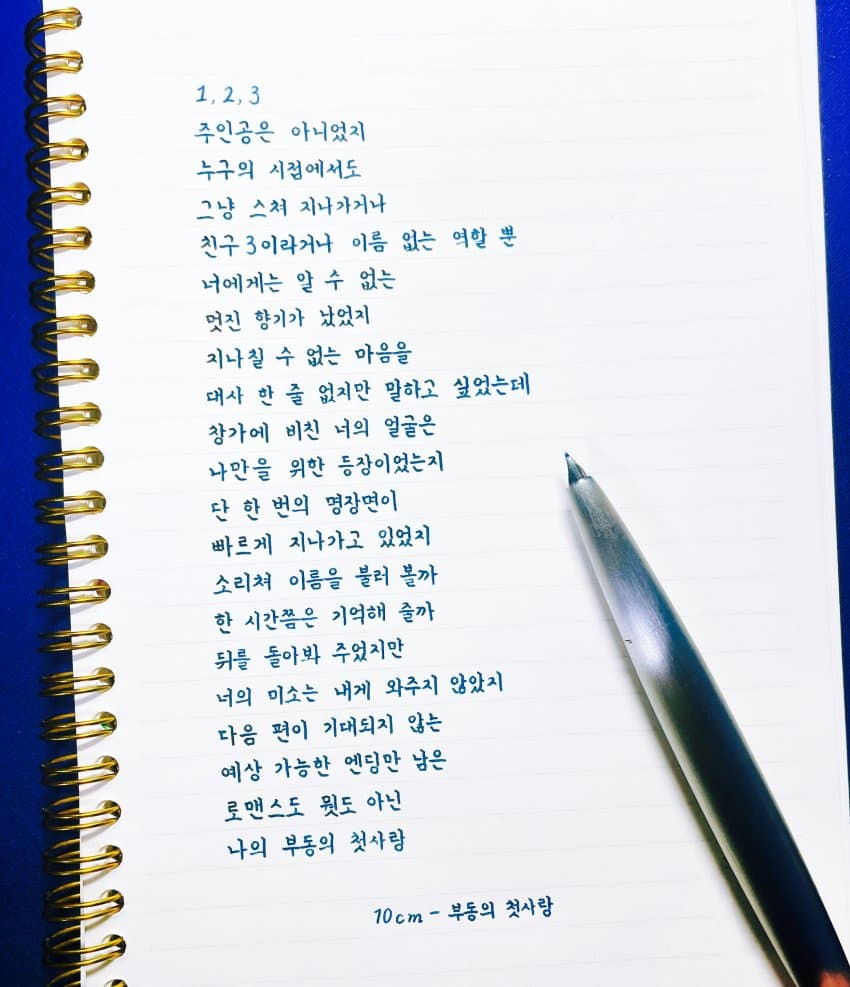 1, 2, 3
주인공은 아니었지
누구의 시점에서도
그냥 스쳐 지나가거나
친구 3이라거나 이름 없는 역할 뿐
너에게는 알 수 없는
멋진 향기가 났었지
지나칠 수 없는 마음을
대사 한 줄 없지만 말하고 싶었는데
창가에 비친 너의 얼굴은
나만을 위한 등장이었는지
단 한 번의 명장면이
빠르게 지나가고 있었지
소리쳐 이름을 불러 볼까
한 시간쯤은 기억해 줄까
뒤를 돌아봐 주었지만
너의 미소는 내게 와주지 않았지
다음 편이 기대되지 않는
예상 가능한 엔딩만 남은
로맨스도 뭣도 아닌
나의 부동의 첫사랑
10cm - 부동의 첫사랑